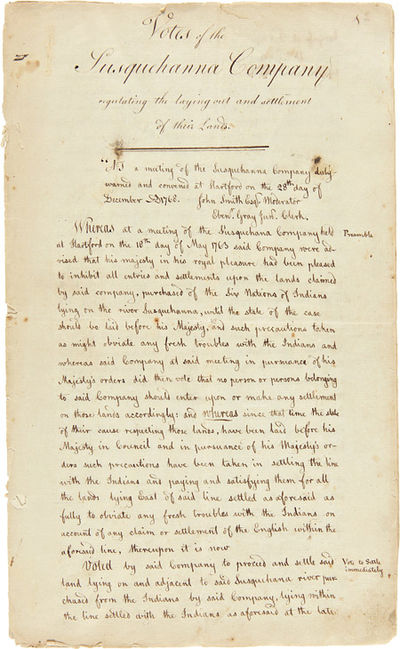 Votes of the
Susquehanna Company
regulating the laying out and settlement
of their Lands.
"At a meeting of the Susquehanna Company duly
warned and convened at Hartford on the 28th day of
December AD 1768. John Smith Esqr Moderator
Ebenr. Gray Junr. Clerk.
Whereas at a meeting of the Susquehana Company held
Preamble
at Hartford on the 18th day of May 1763 said Company were ad-
vised that his majesty in his royal pleasure had been pleased
to inhibit all entries and settlements upon the lands claimed
by said company, purchased of the Six Nations of Indians
lying on the river Susquehanna, until the state of the case
should be laid before his Majesty, and such precautions taken
as might obviate any fresh troubles with the Indians and
whereas said Company at said meeting in pursuance of his
Majesty's orders did then vote that no person or persons belonging
to said Company should enter upon or make any settlement
on those lands accordingly: and whereas since that time the state
of their cause respecting those lands, have been laid before his
Majesty in Council and in pursuance of his Majesty's or-
ders such precautions have been taken in settling the line
with the Indians and paying and satisfying them for all
the lands lying East of said line settled as aforesaid as
fully to obviate any fresh troubles with the Indians on
account of any claim or settlement of the English within the
aforesaid line, thereupon it is now
Voted by said Company to proceed and settle said
Vote to Settle
immediately
land lying on and adjacent to said Susquehana river pur-
chased from the Indians by said Company, lying within
the line settled with the Indians as aforesaid at the late